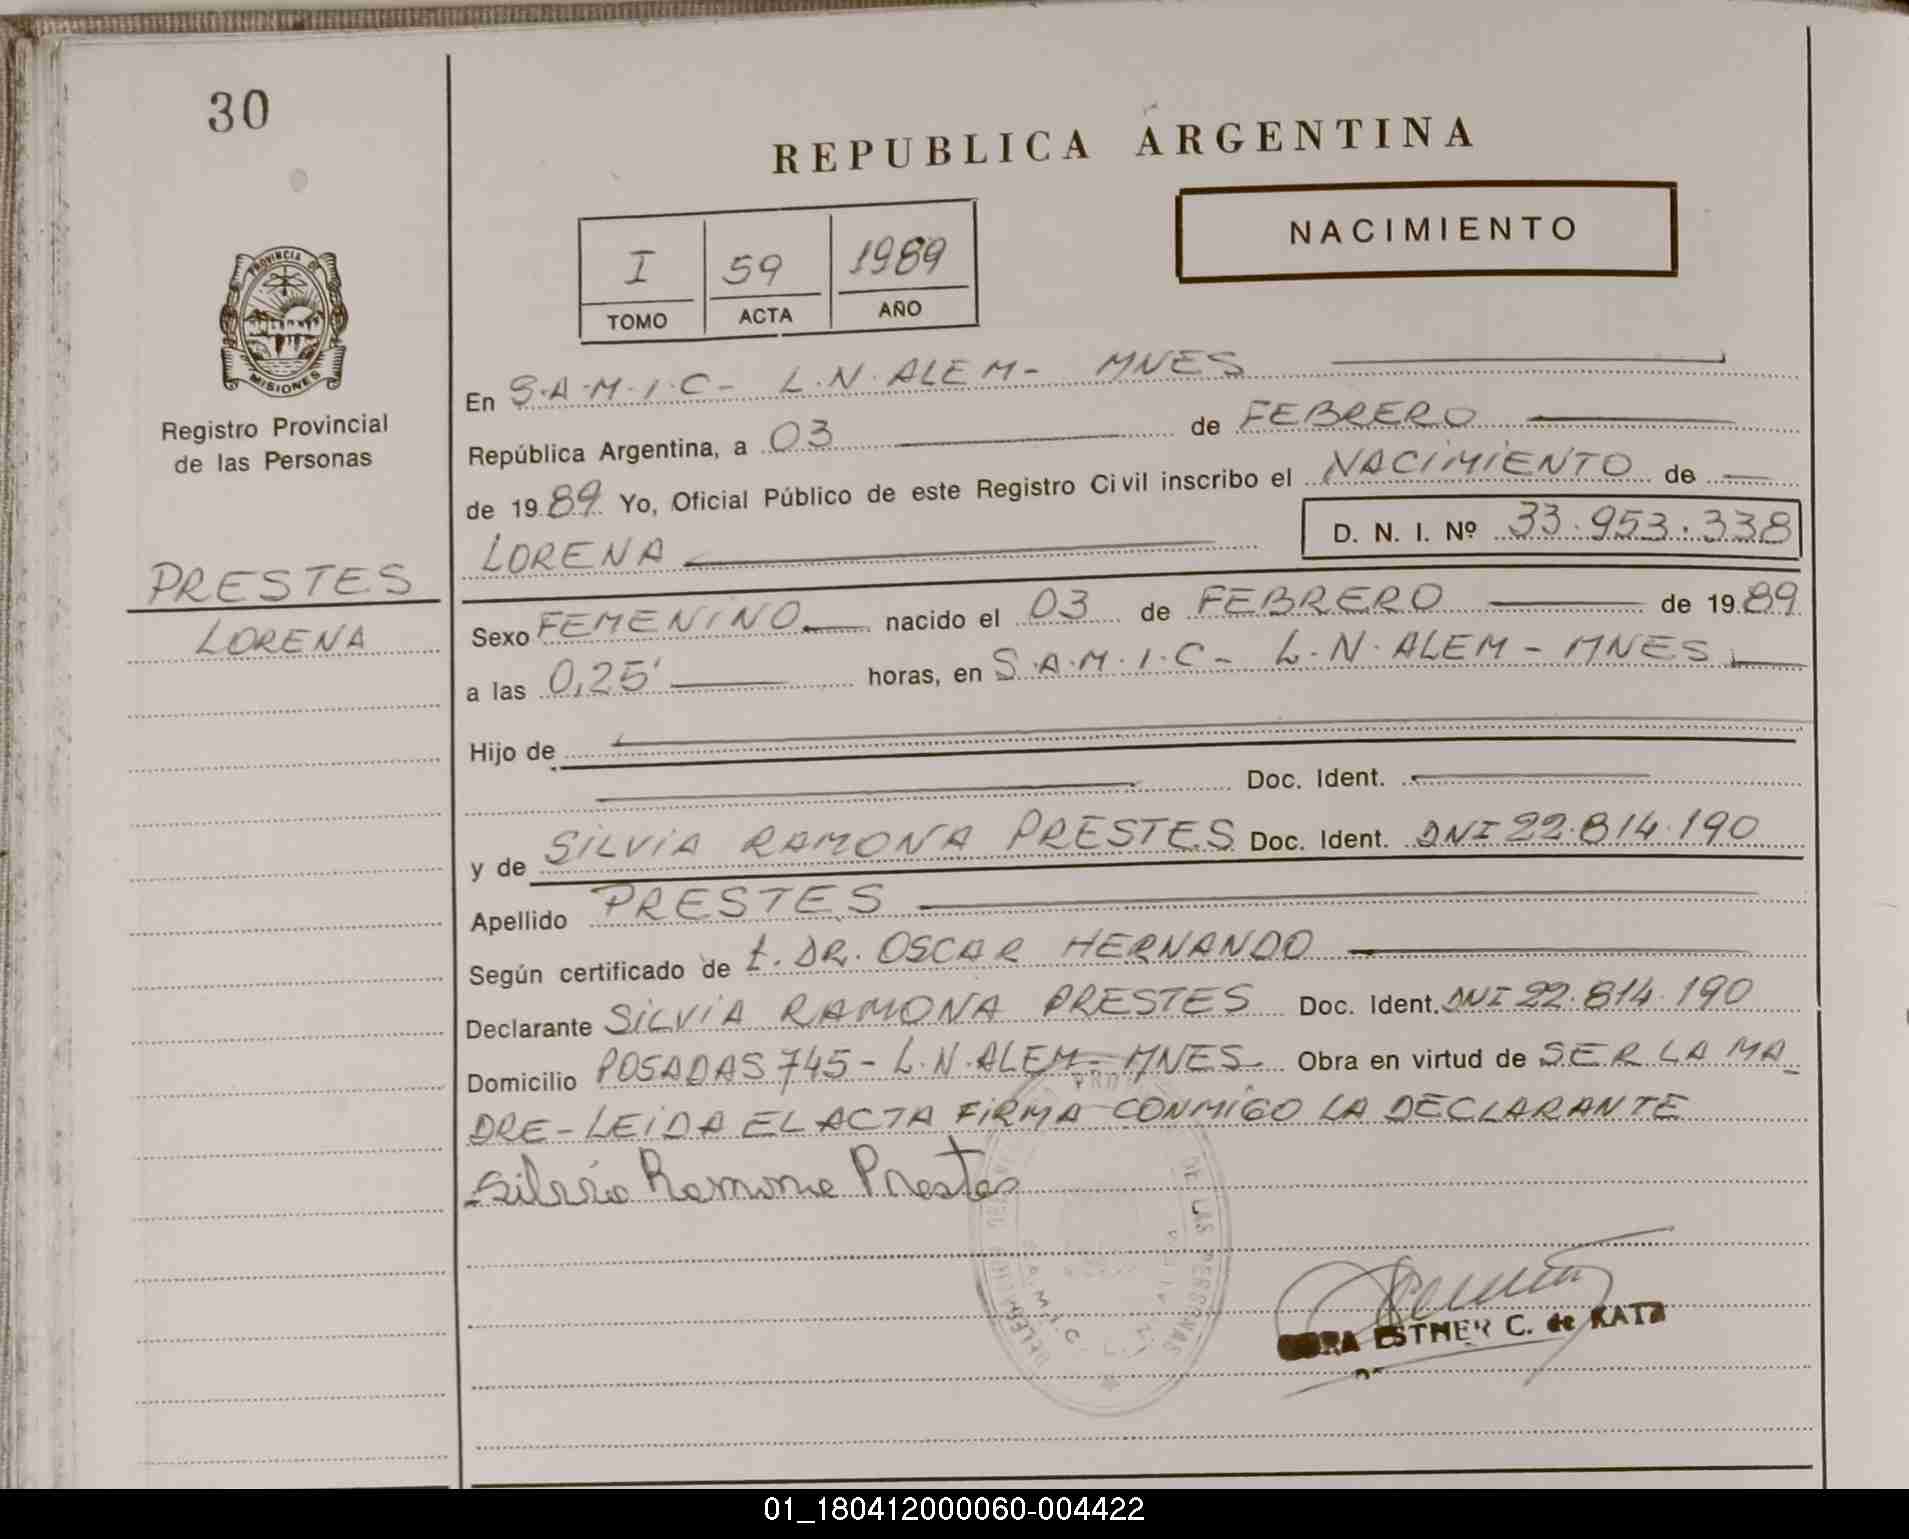 30
REPUBLICA ARGENTINA
NACIMIENTO
I 59 1989
TOMO ACTA AÑO
PROVINCIA DE
MISIONES
Registro Provincial
de las Personas
PRESTES
LORENA
En S.A.M.I.C- L.N.ALEM- MNES
República Argentina, a 03 de FEBRERO
de 1989 Yo, Oficial Público de este Registro Civil inscribo el NACIMIENTO de
LORENA D. N. I. Nº 33.953.338
Sexo FEMENINO nacido el 03 de FEBRERO de 1989
a las 0,25' horas, en S.A.M.I.C- L.N.ALEM - MNES
Hijo de
Doc. Ident.
y de SILVIA RAMONA PRESTES Doc. Ident. DNI 22.814.190
Apellido PRESTES
Según certificado de t. DR. OSCAR HERNANDO
Declarante SILVIA RAMONA PRESTES Doc. Ident. DNI 22.814.190
Domicilio POSADAS 745- L.N.ALEM- MNES- Obra en virtud de SER LA MA_
DRE- LEIDA EL ACTA FIRMA CONMIGO LA DECLARANTE
Silvia Ramona Prestes
DE LAS PERSONAS
S.A.M.I.C. L.N.
ESTHER C. de KATZ
01_180412000060-004422